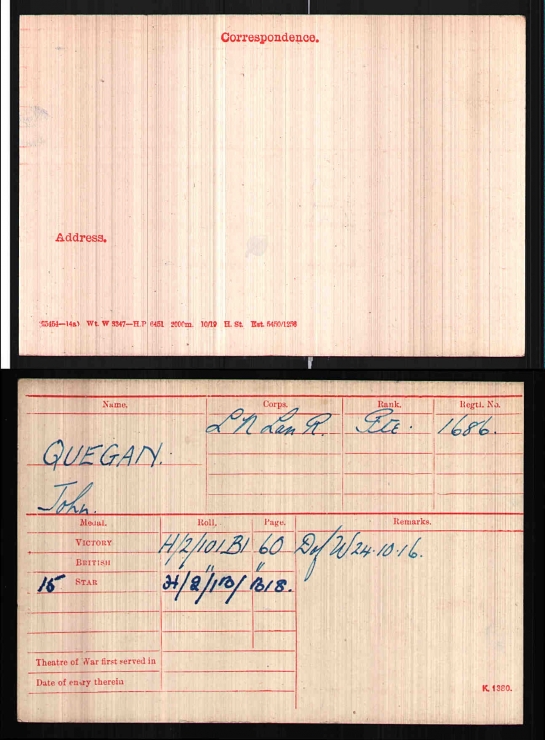 Correspondence.
Address.
Wt. W 3347—H.P 6451 2000m. 10/19 H. St. Est. 5460/1236
Name. Corps. Rank. Regtl. No.
L N Lan R. Pte. 1686.
QUEGAN.
John.
Medal. Roll. Page. Remarks.
VICTORY H/2/101.B1 60 D of W 24.10.16.
BRITISH " "
15 STAR H/2/1B/ B18.
Theatre of War first served in
Date of entry therein
K. 1380.